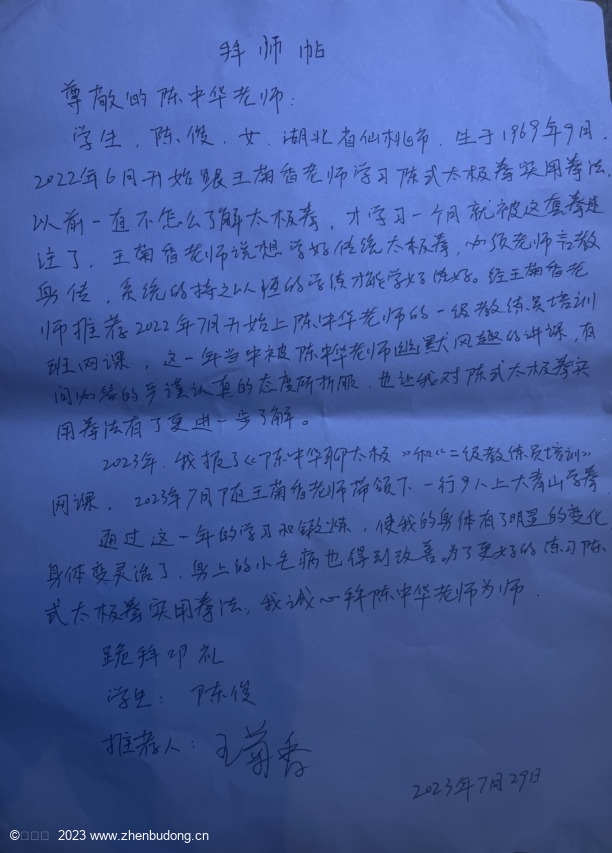 拜师帖
尊敬的陈中华老师：
学生，陈俊，女，湖北省仙桃市，生于1969年9月，
2022年6月开始跟王菊香老师学习陈式太极拳实用拳法，
以前一直不怎么了解太极拳，才学习一个月就被这套拳迷
住了，王菊香老师说想学好传统太极拳，必须老师言教
身传，系统的持之以恒的学练才能学好练好。经王菊香老
师推荐2022年7月开始上陈中华老师的一级教练员培训
班网课，这一年当中被陈中华老师幽默风趣的讲课，有
问必答的严谨认真的态度所折服，也让我对陈式太极拳实
用拳法有了更进一步了解。
2023年，我报了《陈中华聊太极》和《二级教练员培训》
网课，2023年7月在王菊香老师带领下一行9人上大青山学拳
通过这一年的学习和锻炼，使我的身体有了明显的变化
身体变灵活了，身上的小毛病也得到改善，为了更好的练习陈
式太极拳实用拳法，我诚心拜陈中华老师为师。
跪拜叩礼
学生：陈俊
推荐人：王菊香
2023年7月29日
© 2023 www.zhenbudong.cn